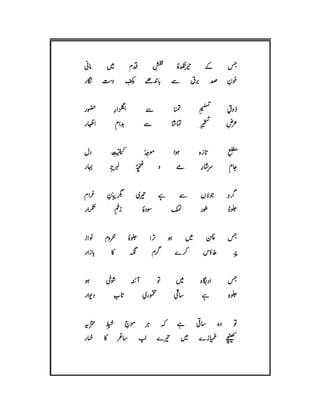 جس کے حیرتکدۂ نقشِ قدم میں مانی
خونِ صد برق سے باندھے بکفِ دست نگار
ذوقِ تسلیمِ تمنا سے بہ گلزارِ حضور
عرضِ تسخیرِ تماشا سے بدامِ اظہار
مطلعِ تازہ ہوا موجۂ کیفیّتِ دل
جامِ سرشارِ مے و غنچۂ لبریزِ بہار
گردِ جولاں سے ہے تیری بگریبانِ خرام
جلوۂ طور نمک سودۂ زخمِ تکرار
جس چمن میں ہو ترا جلوۂ محروم نواز
پرِ طاؤس کرے گرم نگہ کا بازار
جس ادبگاہ میں تو آئنۂ شوخی ہو
جلوہ ہے ساقیِ مخموریِ تابِ دیوار
تو وہ ساقی ہے کہ ہر موجِ محیطِ تنزیہ
کھینچے خمیازے میں تیرے لبِ ساغر کا خمار